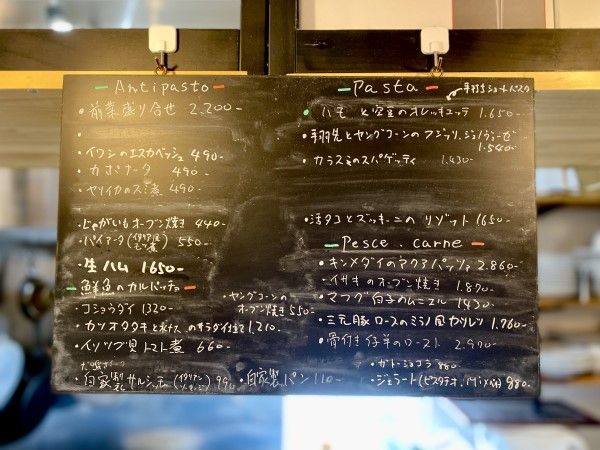 Antipasto
・前菜盛り合せ 2,200-
・イワシのエスカベッシュ 490-
・カポナータ 490-
・ヤリイカのス煮 490-
・じゃがいもオーブン焼き 440-
・パイアータ 550-
・生ハム 1650-
鮮魚のカルパッチョ
・コショウダイ 1320-
・カツオタタキと水けスのサラダ仕立て 1,210-
・イソツブ貝トマト煮 660-
・自家製サルシッチャ (イタリアンソーセージ) 990-
・ヤングコーンの
オーブン焼き 550-
・自家製パン 110-
Pasta
手打ちショートパスタ
・ハモと空豆のオレッキエッテ 1.650-
・手羽先とヤングコーンのフジッリ、ジェノヴェーゼ
1.540-
・カラスミのスパゲッティ 1.430-
・活タコとズッキーニのリゾット 1650-
Pesce . carne
・キンメダイのアクアパッツァ 2.860-
・イサキのオーブン焼き 1.870-
・マフグ白子のムニエル 1,430-
・三元豚ロースのミラノ風カツレツ 1.760-
・骨付き仔羊のロースト 2.970-
・ガトーショコラ 880
・ジェラート(ピスタチオ, Mix) 880-